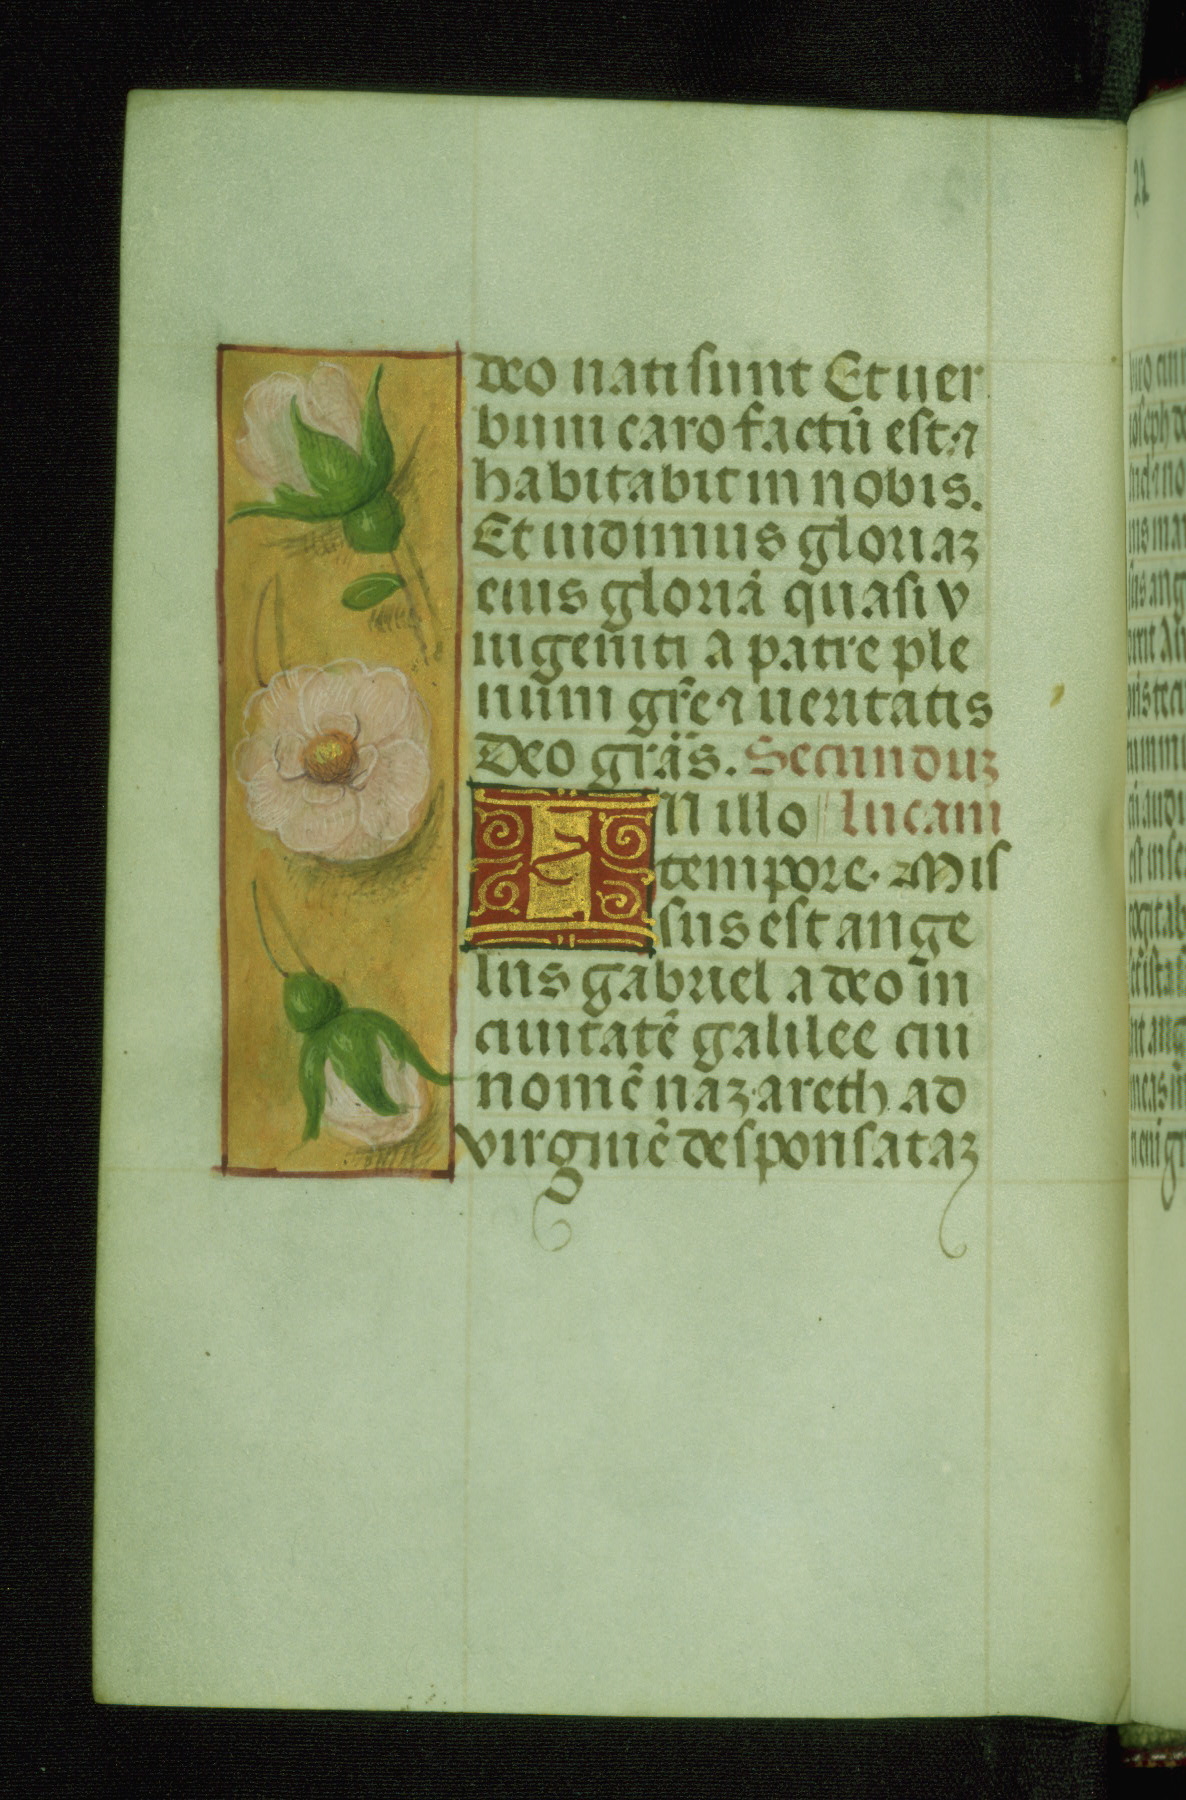 deo nati sunt Et uer
bum caro factū est ⁊
habitabit in nobis.
Et uidimus gloriaʒ
eius gloriā quasi v
nigeniti a patre ple
num gr̄e ⁊ ueritatis
Deo grās. Secunduʒ
IN illo lucam
tempore. Mis
sus est ange
lus gabriel a deo in
ciuitatē galilee cui
nomē nazareth ad
virginē desponsataʒ
22